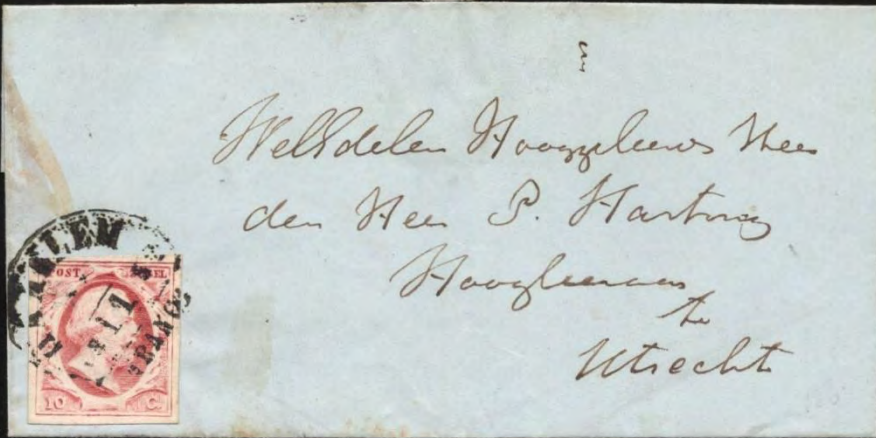 WelEdelen Hooggeleerd Heer
den Heer P. Harting
Hoogleeraar
te
Utrecht
HAARLEM
POST ZEGEL
1
FRANCO
10 C.